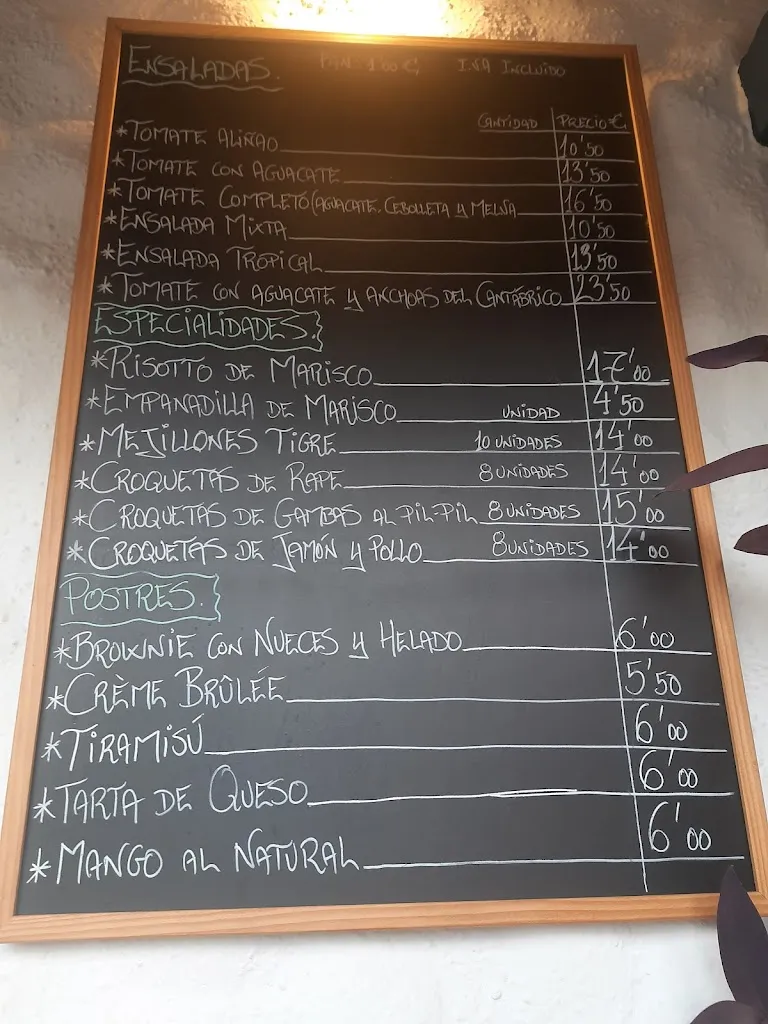 ENSALADAS. PAN 1'00 € I.V.A INCLUIDO
CANTIDAD PRECIO €
*TOMATE ALIÑAO 10'50
*TOMATE CON AGUACATE 13'50
*TOMATE COMPLETO (AGUACATE, CEBOLLETA Y MELVA 16'50
*ENSALADA MIXTA 10'50
*ENSALADA TROPICAL 13'50
*TOMATE CON AGUACATE Y ANCHOAS DEL CANTÁBRICO 23'50
ESPECIALIDADES.
*RISOTTO DE MARISCO 17'00
*EMPANADILLA DE MARISCO UNIDAD 4'50
*MEJILLONES TIGRE 10 UNIDADES 14'00
*CROQUETAS DE RAPE 8 UNIDADES 14'00
*CROQUETAS DE GAMBAS AL PIL-PIL 8 UNIDADES 15'00
*CROQUETAS DE JAMÓN Y POLLO 8 UNIDADES 14'00
POSTRES.
*BROWNIE CON NUECES Y HELADO 6'00
*CRÈME BRÛLÉE 5'50
*TIRAMISÚ 6'00
*TARTA DE QUESO 6'00
*MANGO AL NATURAL 6'00